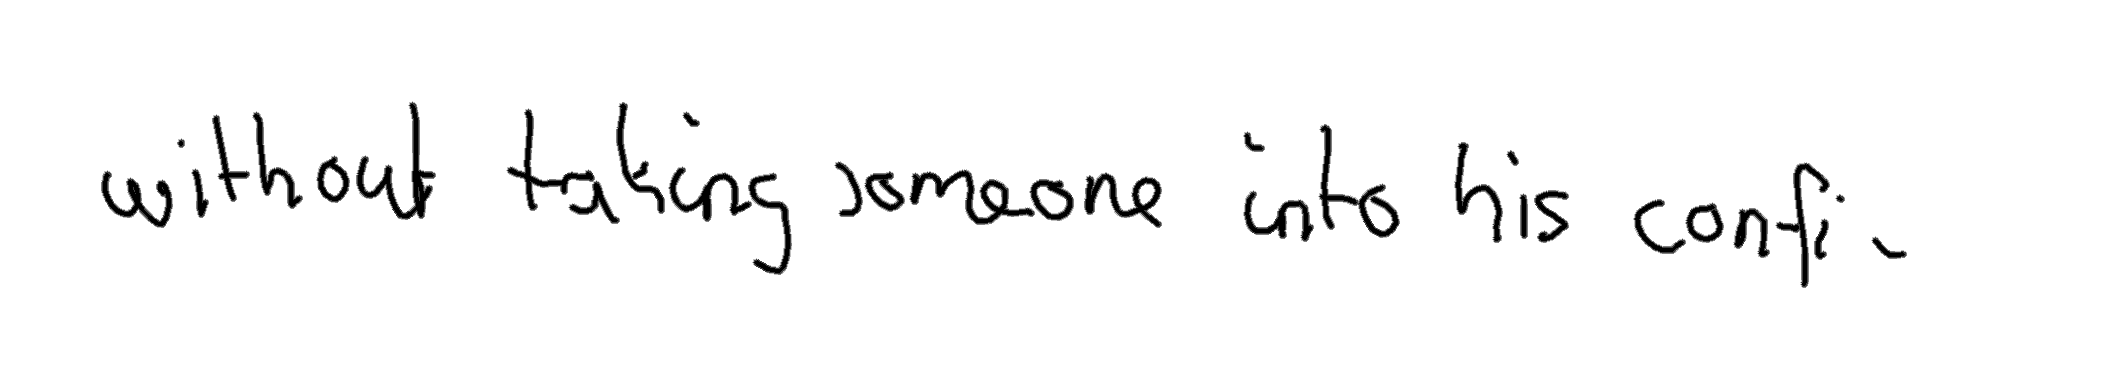 without taking someone into his confi-